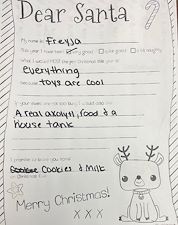 Dear Santa
My name is Freyja
This year I have been very good quite good a bit naughty
What I would MOST like this Christmas time year is
everything
because toys are cool
If your elves are not too busy, I would also like
A real axolotl, food & a
house tank
I promise to leave you some
Cookies & Milk
on Christmas Eve
Merry Christmas!
X X X